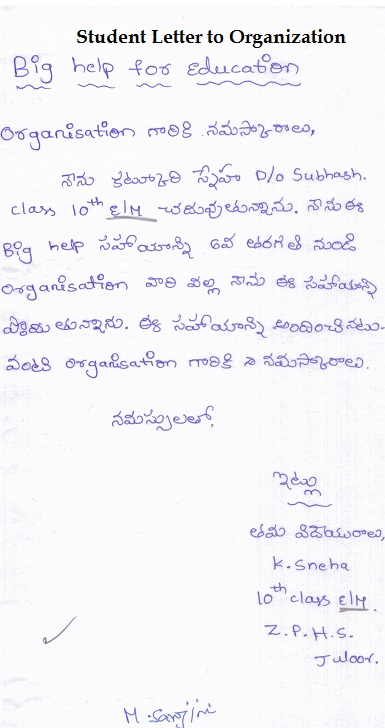 Student Letter to Organization
Big help for Education
Organisation గారికి నమస్కారాలు,
నేను కట్కూరి స్నేహా D/o Subhash.
class 10th E/M చదువుతున్నాను. నేను ఈ
Big help సహాయాన్ని 6వ తరగతి నుండి
Organisation వారి వల్ల నేను ఈ సహాయాన్ని
పొందుతున్నాను. ఈ సహాయాన్ని అందించినటు-
వంటి Organisation గారికి నా నమస్కారాలు.
నమస్సులతో,
ఇట్లు
తమ విధేయురాలు,
K. Sneha
10th class E/M.
Z.P.H.S.
Juloor.